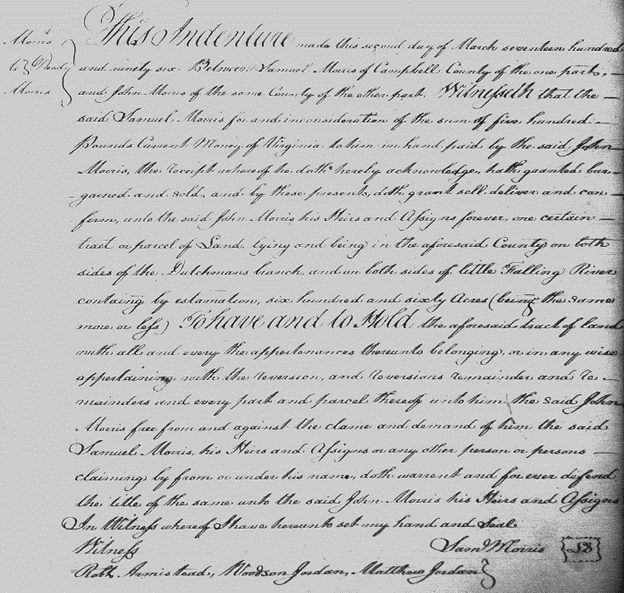 Morris
to } Deed
Morris
This Indenture made this second day of March seventeen hundred
and ninety six Between Samuel Morris of Campbell County of the one part,
and John Morris of the same County of the other part. Witnesseth that the
said Samuel Morris for and inconsideration of the sum of five hundred
Pounds Current Money of Virginia to him in hand paid by the said John
Morris, the receipt where of he doth hereby acknowledge, hath granted bar-
gained and sold, and by these presents, doth grant sell deliver and con-
firm, unto the said John Morris his Heirs and Assigns forever one certain
tract or parcel of Land lying and being in the aforesaid County on both
sides of the Dutchmans branch and on both sides of little Falling River
containg by estamation, six hundred and sixty Acres (being the same
more or less) To have and to Hold the aforesaid tract of land
with all and every the appertenances thereunto belonging, or in any wise
appertaining with the reversion, and reversions remainder and re-
mainders and every part and parcel thereof unto him the said John
Morris free from and against the clame and demand of him the said
Samuel Morris, his Heirs and Assigns or any other person or persons
claiming by from or under his name, doth warrent and for ever defend
the title of the same unto the said John Morris his Heirs and Assigns
In Witness whereof I have hereunto set my hand and Seale
Witness Saml Morris LS
Robt Armistead, Woodson Jordan, Matthew Jordan }